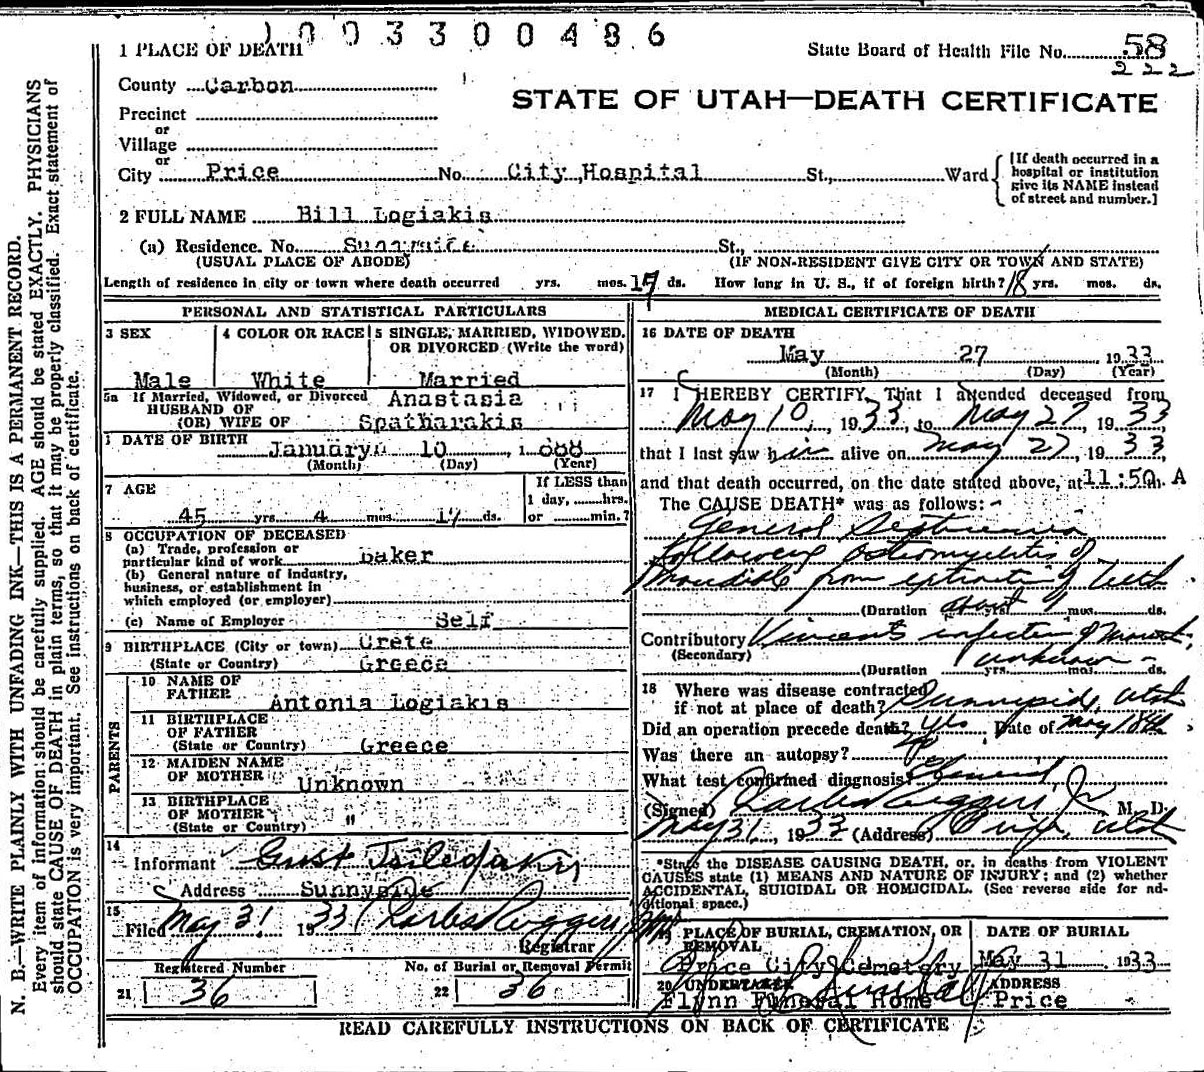 1003300486
1 PLACE OF DEATH
State Board of Health File No. 58
222
County Carbon
STATE OF UTAH—DEATH CERTIFICATE
Precinct
or
Village
or
City Price No. City Hospital St., Ward
[If death occurred in a
hospital or institution
give its NAME instead
of street and number.]
2 FULL NAME Bill Logiakis
(a) Residence. No. Sunnyside St.,
(USUAL PLACE OF ABODE) (IF NON-RESIDENT GIVE CITY OR TOWN AND STATE)
Length of residence in city or town where death occurred yrs. mos. 17 ds. How long in U. S., if of foreign birth? 18 yrs. mos. ds.
PERSONAL AND STATISTICAL PARTICULARS
3 SEX 4 COLOR OR RACE 5 SINGLE, MARRIED, WIDOWED,
OR DIVORCED (Write the word)
Male White Married
5a If Married, Widowed, or Divorced Anastasia
HUSBAND OF
(OR) WIFE OF Spatharakis
DATE OF BIRTH
January 10, 1888
(Month) (Day) (Year)
7 AGE If LESS than
1 day, hrs.
45 yrs. 4 mos. 17 ds. or min.?
8 OCCUPATION OF DECEASED
(a) Trade, profession or
particular kind of work Baker
(b) General nature of industry,
business, or establishment in
which employed (or employer)
(c) Name of Employer Self
9 BIRTHPLACE (City or town) Crete
(State or Country) Greece
PARENTS
10 NAME OF
FATHER
Antonia Logiakis
11 BIRTHPLACE
OF FATHER
(State or Country) Greece
12 MAIDEN NAME
OF MOTHER
Unknown
13 BIRTHPLACE
OF MOTHER
(State or Country) "
14
Informant Gust
Address Sunnyside
15
Filed May 31 1933
Registrar
Registered Number No. of Burial or Removal Permit
21 36 22 36
MEDICAL CERTIFICATE OF DEATH
16 DATE OF DEATH
May 27 1933
(Month) (Day) (Year)
17 I HEREBY CERTIFY, That I attended deceased from
May 10, 1933, to May 27, 1933
that I last saw him alive on May 27, 1933
and that death occurred, on the date stated above, at 11:50 m. A
The CAUSE DEATH* was as follows:-
General Septicemia
following Osteomyelitis of
Mandible from extraction of Teeth.
(Duration about 9 mos. ds.
Contributory Vincent's infection of Mouth;
(Secondary) unknown -
(Duration yrs. mos. ds.
18 Where was disease contracted
if not at place of death? Sunnyside, Utah
Did an operation precede death? Yes Date of May 18th
Was there an autopsy?
What test confirmed diagnosis?
(Signed) Ruggeri, Jr M. D.
May 31, 1933 (Address) Price, Utah
*State the DISEASE CAUSING DEATH, or, in deaths from VIOLENT
CAUSES state (1) MEANS AND NATURE OF INJURY; and (2) whether
ACCIDENTAL, SUICIDAL OR HOMICIDAL. (See reverse side for ad-
ditional space.)
19 PLACE OF BURIAL, CREMATION, OR REMOVAL DATE OF BURIAL
Price City Cemetery May 31, 1933
20 UNDERTAKER ADDRESS
Flynn Funeral Home Price
READ CAREFULLY INSTRUCTIONS ON BACK OF CERTIFICATE
N. B.—WRITE PLAINLY WITH UNFADING INK—THIS IS A PERMANENT RECORD.
Every item of information should be carefully supplied. AGE should be stated EXACTLY. PHYSICIANS
should state CAUSE OF DEATH in plain terms, so that it may be properly classified. Exact statement of
OCCUPATION is very important. See instructions on back of certificate.